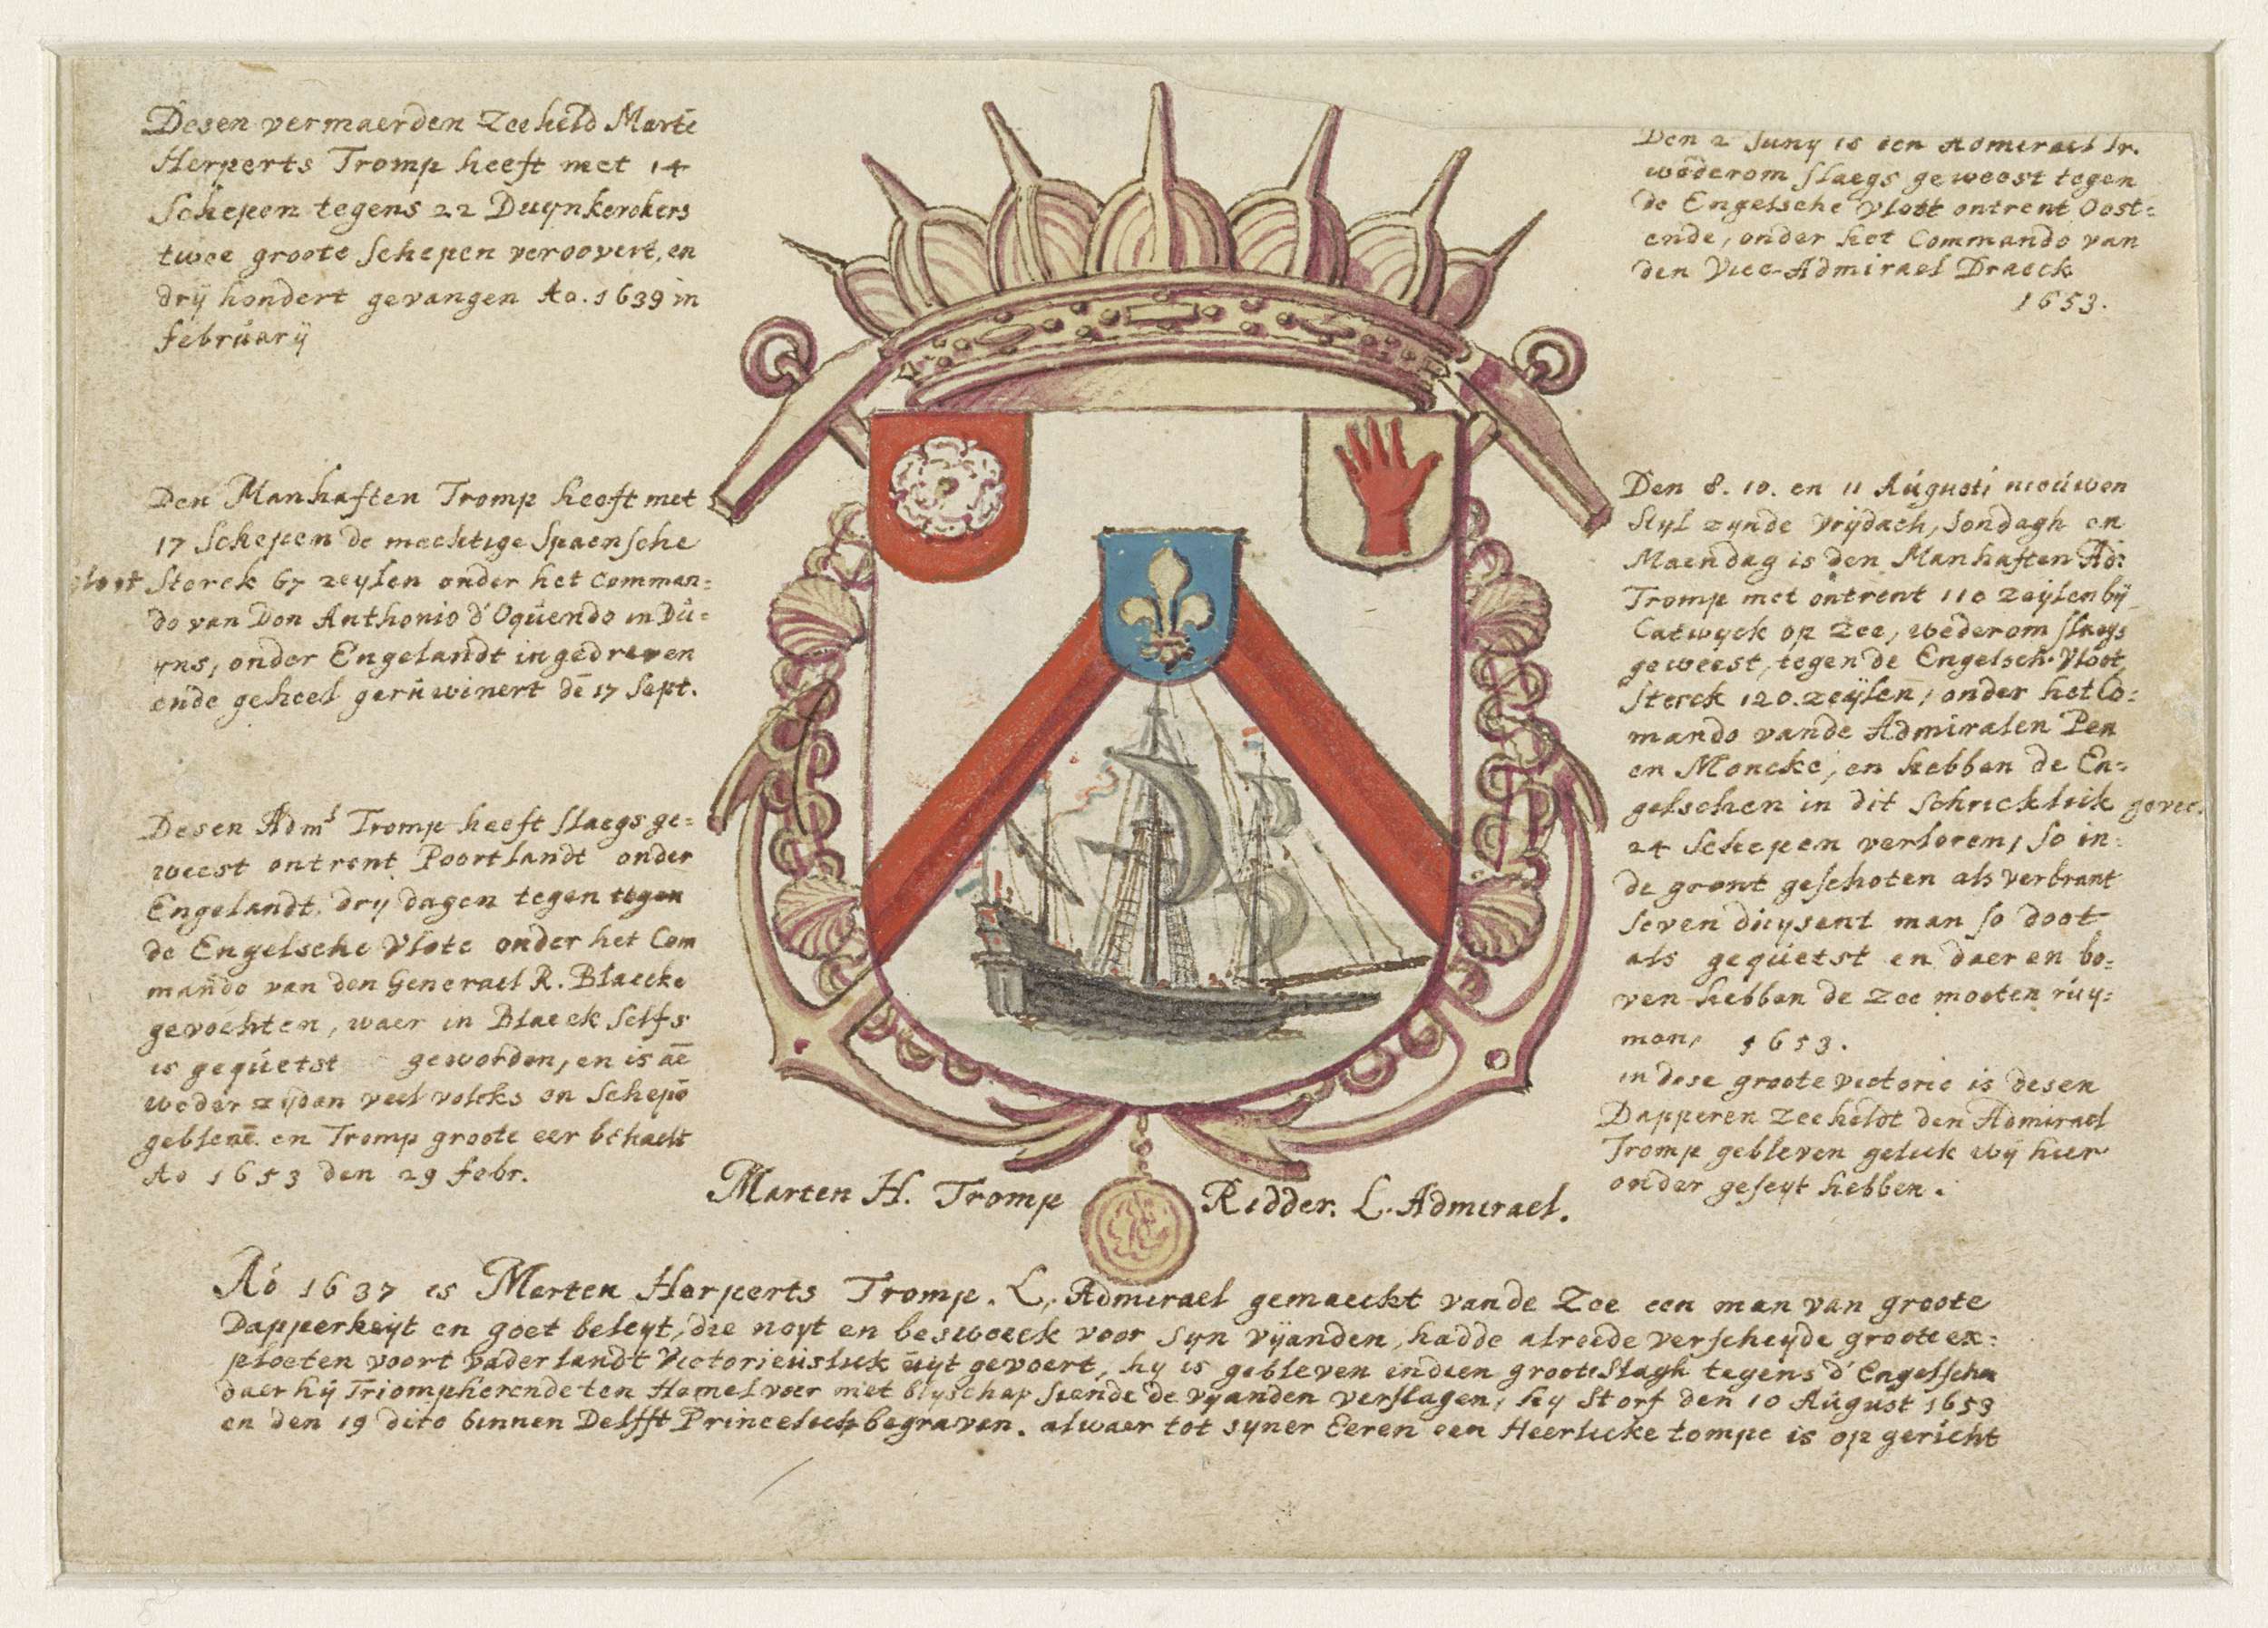 Desen vermaerden Zeeheld Martē
Herperts Tromp heeft met 14
Schepen tegens 22 Duynkerckers
twee groote schepen veroovert, en
drÿ hondert gevangen Ao. 1639 in
februarÿ
Den Manhaften Tromp heeft met
17 Schepen de mechtige Spaensche
vloot Sterck 67 zeylen onder het Comman=
do van Don Anthonio d'Oquendo in Du=
yns, onder Engelandt ingedreven
ende geheel geruwinert dē 17 Sept.
Desen Adml Tromp heeft slaegs ge=
weest ontrent Poortlandt onder
Engelandt. drÿ dagen tegen tegen
de Engelsche Vlote onder het Com
mando van den Generael R. Blaecke
gevochten, waer in Blaeck selfs
is gequetst geworden, en is aē
weder zÿden veel volcks en Schepē
geblevē. en Tromp groote eer behaelt
Ao 1653 den 29 febr.
Den 2 Juny is den Admirael Tr.
wederom slaegs geweest tegen
de Engelsche Vloot ontrent Oost=
ende, onder het Commando van
den Vice-Admirael Draeck
1653.
Den 8. 10. en 11 Augusti nieuwen
Styl zynde Vrÿdach, Sondagh en
Maendag is den Manhaften Ad:
Tromp met ontrent 110 Zeÿlen bÿ
Catwyck op Zee, wederom slaegs
geweest, tegen de Engelsch. Vloot,
Sterck 120. zeÿlen, onder het Co=
mando vande Admiralen Pen
en Moncke, en hebben de En=
gelschen in dit schricklick gevec.
24 Schepen verloren, so in
de gront geschoten als verbrant
seven duysent man so doot
als gequetst en daer en bo=
ven hebben de Zee moeten ruy=
men, 1653.
in dese groote victorie is desen
Dapperen Zeeheldt den Admirael
Tromp gebleven gelick wÿ hier
onder geseyt hebben.
Marten H. Tromp Ridder. L. Admirael.
Ao 1637 is Merten Herperts Tromp. L. Admirael gemaeckt vande Zee een man van groote
Dapperheyt en goet beleyt, die noyt en besweeck voor syn vÿanden, hadde alreede verscheyde groote ex=
ploeten voort vaderlandt Victorieuslick uyt gevoert, hy is gebleven indien groote Slagh tegens d'Engelsche
daer hÿ Triompherende ten Hemel voer met blyschap siende de vÿanden verslagen, hy Storf den 10 August 1653
en den 19 dito binnen Delfft Princelick begraven. alwaer tot syner Eeren een Heerlicke tompe is op gericht